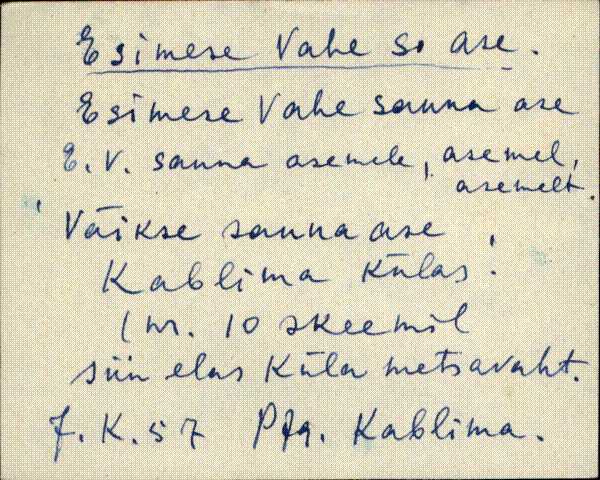 Esimese Vahe s. ase.
Esimese Vahe sauna ase
E. V. sauna asemele, asemel,
asemelt.
Väikse sauna ase
Kablima külas.
(nr. 10 skeemil
siin elas küla metsavaht.
J. K. 57 Pfg. Kablima.